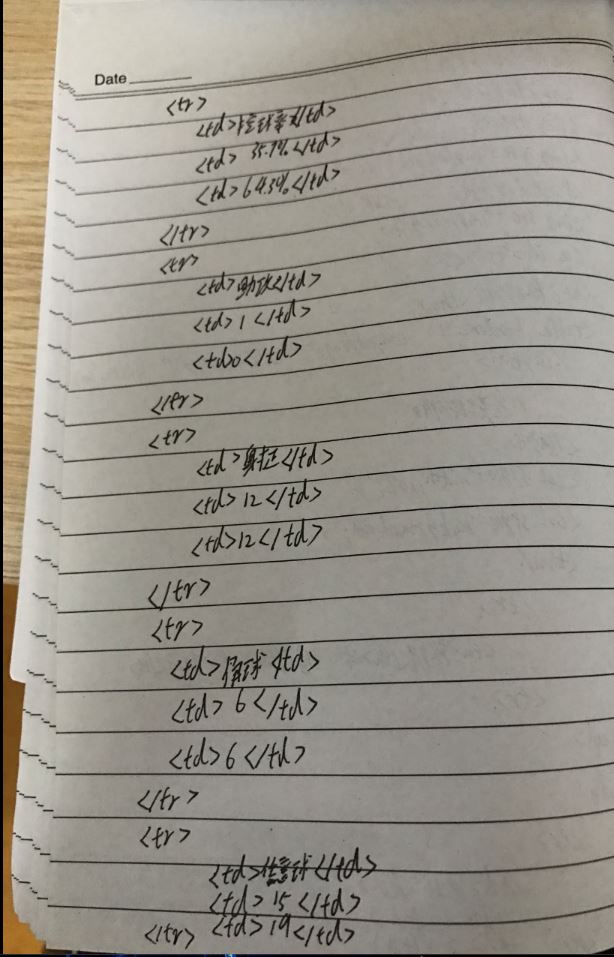 Date
<tr>
<td>控球率</td>
<td> 35.7%</td>
<td>64.3%</td>
</tr>
<tr>
<td>助攻</td>
<td>1</td>
<td>0</td>
</tr>
<tr>
<td>射正</td>
<td>12</td>
<td>12</td>
</tr>
<tr>
<td>角球</td>
<td>6</td>
<td>6</td>
</tr>
<tr>
<td> </td>
<td>15</td>
</tr> <td>19</td>